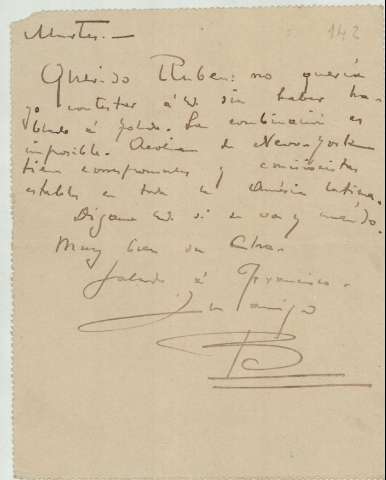 Martes.—
142
Querido Ruben: no quería
yo contestar á V. sin haber ha-
blado á . La combinación es
imposible. Aeolian de New-York
tiene corresponsales y
estables en toda la América latina.
Dígame V. si se va y cuándo.
Muy bien su
Saludo á Francisca.
Su amigo